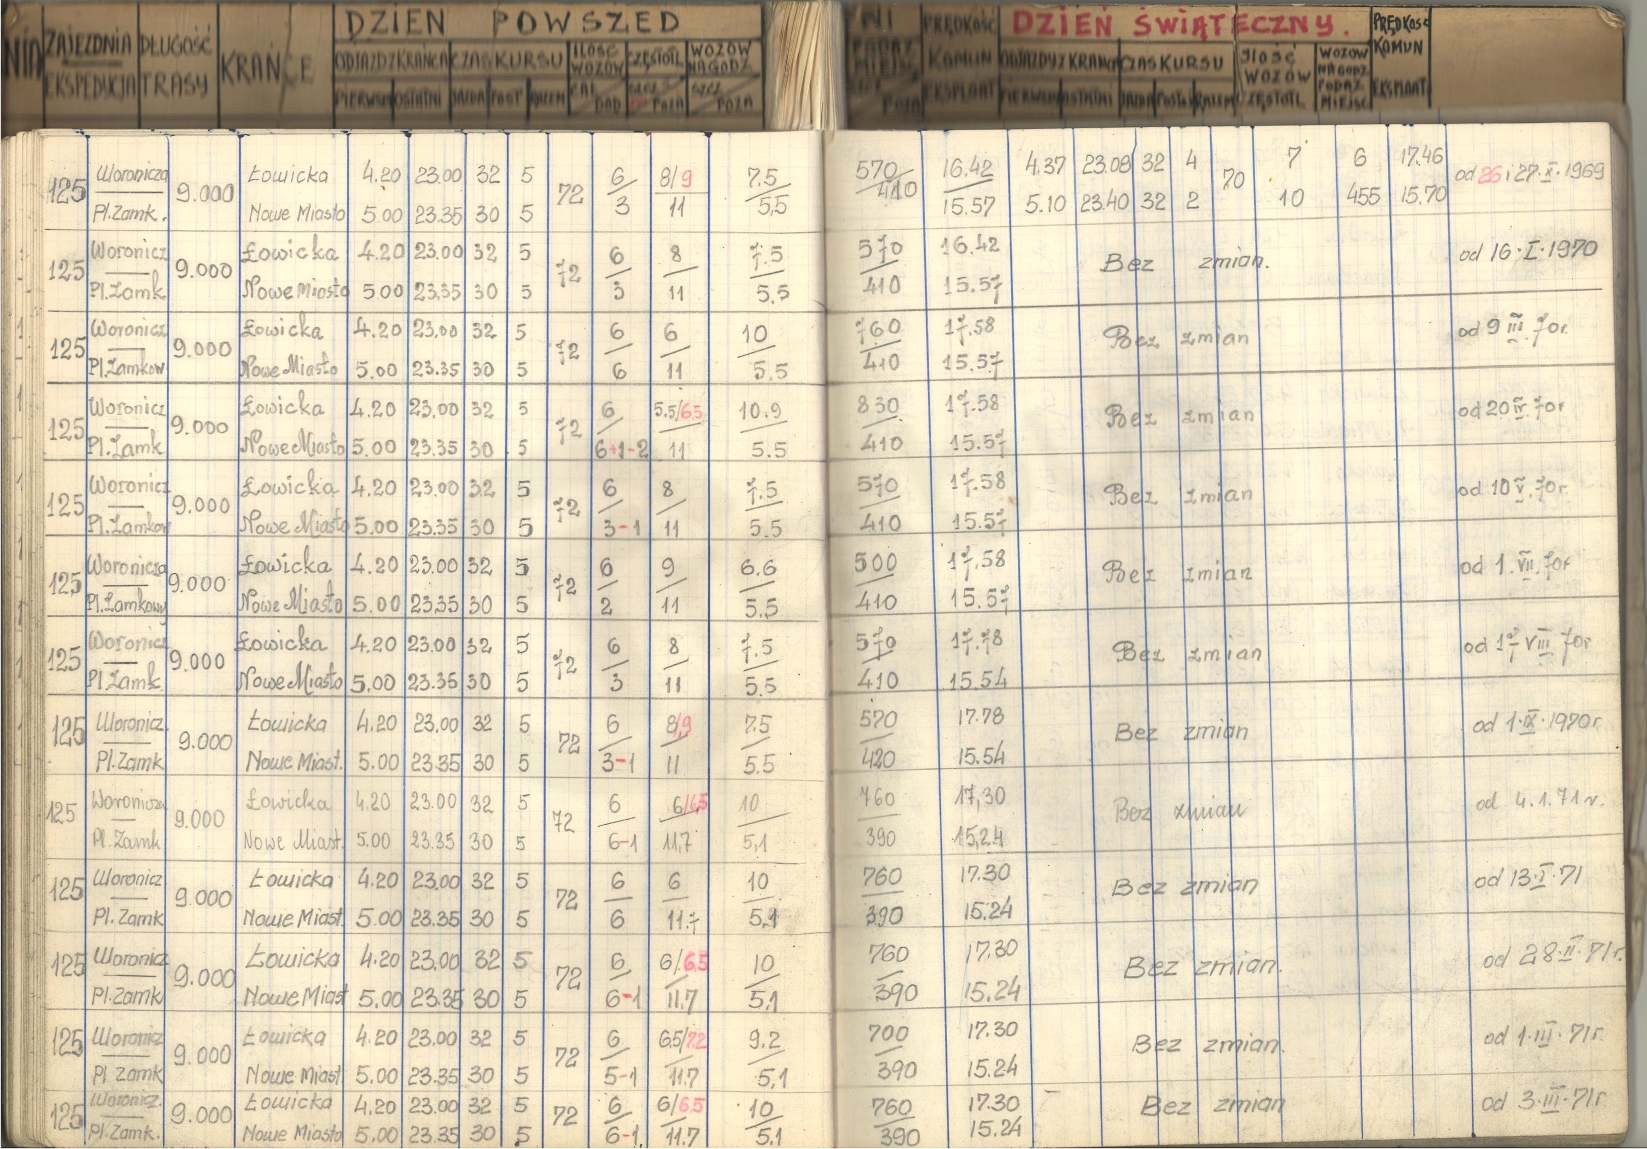 DZIEŃ POWSZED NI DZIEŃ ŚWIĄTECZNY.
NIA ZAJEZDNIA DŁUGOŚĆ KRAŃCE ODJAZD Z KRAŃCA CZAS KURSU ILOŚĆ WOZÓW CZĘSTOTL WOZÓW NA GODZ. PRĘDKOŚĆ KOMUN ODJAZDY Z KRAŃCA CZAS KURSU ILOŚĆ WOZÓW WOZÓW NA GODZ PODAŻ MIEJSC PRĘDKOŚĆ KOMUN
EKSPEDYCJA TRASY PIERWSZY OSTATNI JAZDA POST RAZEM CAŁ DOD SZCZ POZA SZCZ POZA POZA EKSPLOAT PIERWSZ OSTATNI JAZDA POSTÓJ RAZEM CZĘSTOTL EKSPLOAT
125 Woronicza 9.000 Łowicka 4.20 23.00 32 5 72 6 8/9 7.5 570 16.42 4.37 23.08 32 4 70 7 6 17.46 od 26 i 27.X.1969
Pl.Zamk. Nowe Miasto 5.00 23.35 30 5 3 11 5,5 410 15.57 5.10 23.40 32 2 10 455 15.70
125 Woronicz 9.000 Łowicka 4.20 23.00 32 5 72 6 8 7.5 570 16.42 Bez zmian. od 16.I.1970
Pl.Zamk Nowe Miasto 5.00 23.35 30 5 3 11 5,5 410 15.57
125 Woronicz 9.000 Łowicka 4.20 23.00 32 5 72 6 6 10 760 17.58 Bez zmian od 9 III 70r.
Pl.Zamkow Nowe Miasto 5.00 23.35 30 5 6 11 5,5 410 15.57
125 Woronicz 9.000 Łowicka 4.20 23.00 32 5 72 6 5.5/6.5 10.9 830 17.58 Bez zmian od 20 IV 70r
Pl.Zamk Nowe Miasto 5.00 23.35 30 5 6+1-2 11 5.5 410 15.57
125 Woronicz 9.000 Łowicka 4.20 23.00 32 5 72 6 8 7.5 570 17.58 Bez zmian od 10 V 70r.
Pl.Zamkow Nowe Miasto 5.00 23.35 30 5 3-1 11 5.5 410 15.57
125 Woronicza 9.000 Łowicka 4.20 23.00 32 5 72 6 9 6.6 500 17.58 Bez zmian od 1.VII.70r
Pl.Zamkowy Nowe Miasto 5.00 23.35 30 5 2 11 5.5 410 15.57
125 Woronicz 9.000 Łowicka 4.20 23.00 32 5 72 6 8 7.5 570 17.78 Bez zmian od 17 VIII 70r
Pl.Zamk. Nowe Miasto 5.00 23.35 30 5 3 11 5.5 410 15.54
125 Woronicz. 9.000 Łowicka 4.20 23.00 32 5 72 6 8/9 7.5 570 17.78 Bez zmian od 1.IX.1970r.
Pl.Zamk Nowe Miast. 5.00 23.35 30 5 3-1 11 5.5 420 15.54
125 Woronicza 9.000 Łowicka 4.20 23.00 32 5 72 6 6/6,5 10 760 17,30 Bez zmian od 4.1.71r.
Pl.Zamk Nowe Miast. 5.00 23.35 30 5 6-1 11,7 5,1 390 15,24
125 Woronicz 9.000 Łowicka 4.20 23.00 32 5 72 6 6 10 760 17.30 Bez zmian od 13.I.71
Pl.Zamk Nowe Miast. 5.00 23.35 30 5 6 11.7 5,1 390 15.24
125 Woronicz 9.000 Łowicka 4.20 23.00 32 5 72 6 6/6.5 10 760 17.30 Bez zmian. od 28.II.71r.
Pl.Zamk Nowe Miast 5.00 23.35 30 5 6-1 11.7 5,1 390 15.24
125 Woronicz 9.000 Łowicka 4.20 23.00 32 5 72 6 6.5/7.2 9.2 700 17.30 Bez zmian. od 1.III.71r.
Pl Zamk Nowe Miast 5.00 23.35 30 5 5-1 11.7 5,1 390 15.24
125 Woronicz. 9.000 Łowicka 4.20 23.00 32 5 72 6 6/6.5 10 760 17.30 Bez zmian od 3.III.71r
Pl.Zamk. Nowe Miasto 5.00 23.35 30 5 6-1 11.7 5.1 390 15.24